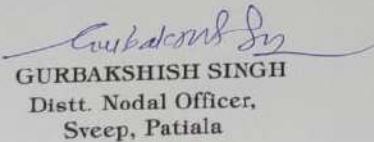 GURBAKSHISH SINGH
Distt. Nodal Officer,
Sveep, Patiala